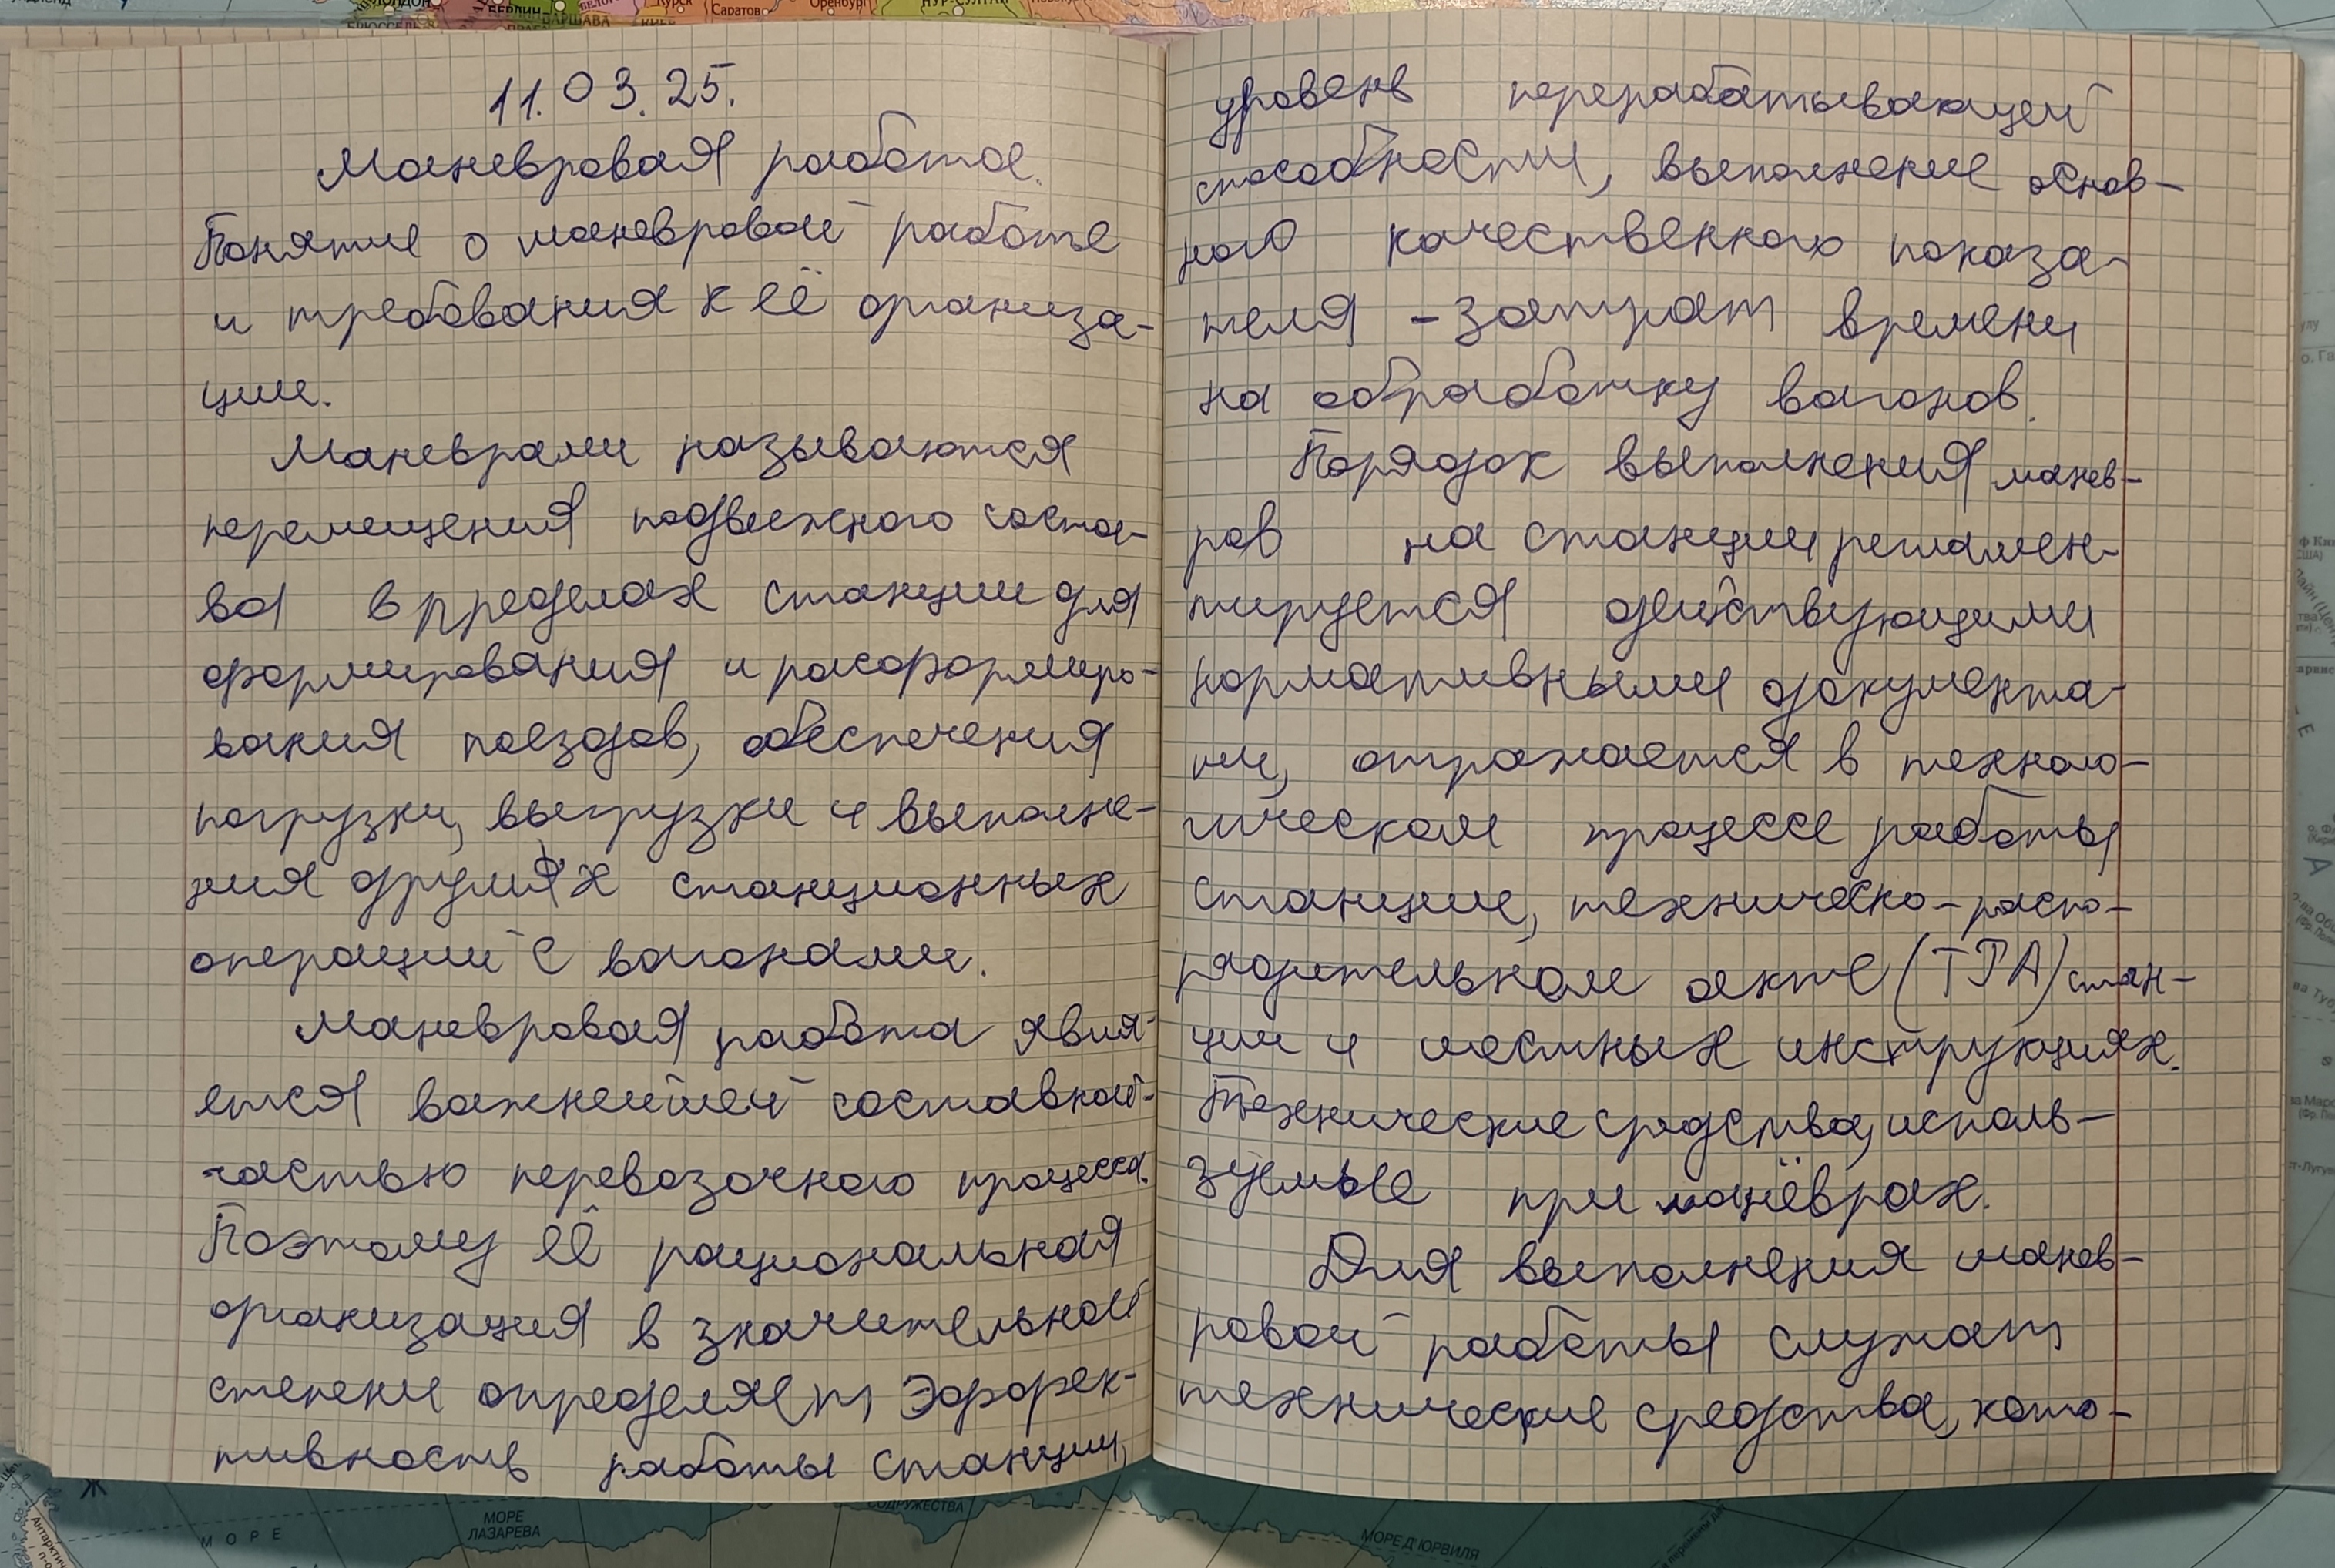 11.03.25.
Маневровая работа.
Понятие о маневровой работе
и требования к её организа-
ции.
Маневрами называются
перемещения подвижного соста-
ва в пределах станции для
формирования и расформиро-
вания поездов, обеспечения
погрузки, выгрузки и выполне-
ния других станционных
операций с вагонами.
Маневровая работа явля-
ется важнейшей составной
частью перевозочного процесса.
Поэтому её рациональная
организация в значительной
степени определяет эффек-
тивность работы станции,
уровень перерабатывающей
способности, выполнение основ-
ного качественного показа-
теля - затрат времени
на обработку вагонов.
Порядок выполнения манев-
ров на станции регламен-
тируется действующими
нормативными документа-
ми, отражается в техноло-
гическом процессе работы
станции, техническо-распо-
рядительном акте (ТРА) стан-
ции и местных инструкциях.
Технические средства, исполь-
зуемые при манёврах.
Для выполнения манев-
ровой работы служат
технические средства, кото-
БЕРЛИН
ВАРШАВА
БРЮССЕЛЬ
Курск
Саратов
Оренбург
НУР-СУЛТАН
МОРЕ
МОРЕ
ЛАЗАРЕВА
СОДРУЖЕСТВА
МОРЕ Д'ЮРВИЛЯ